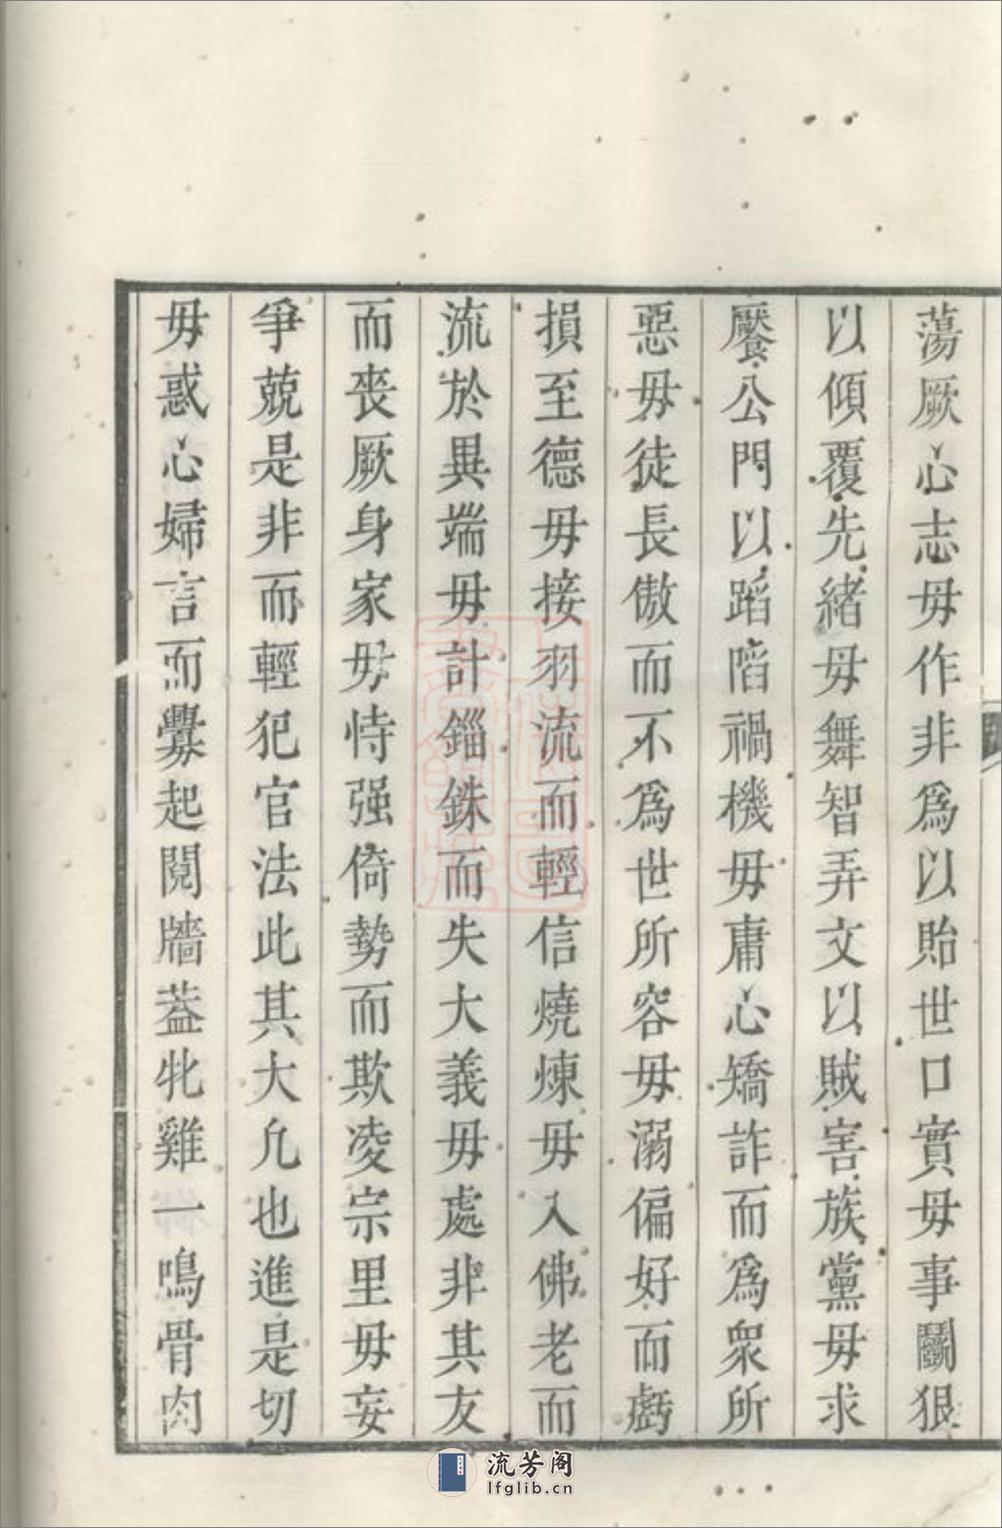 蕩厥心志毋作非爲以貽世口實毋事鬭狠
以傾覆先緒毋舞智弄文以賊害族黨毋求
饜公門以蹈陷禍機毋庸心矯詐而爲衆所
惡毋徒長傲而不爲世所容毋溺偏好而虧
損至德毋接羽流而輕信燒煉毋入佛老而
流於異端毋計錙銖而失大義毋處非其友
而喪厥身家毋恃强倚勢而欺凌宗里毋妄
爭兢是非而輕犯官法此其大凢也進是切
毋惑心婦言而釁起鬩牆葢牝雞一鳴骨肉
流芳阁
lfglib.cn